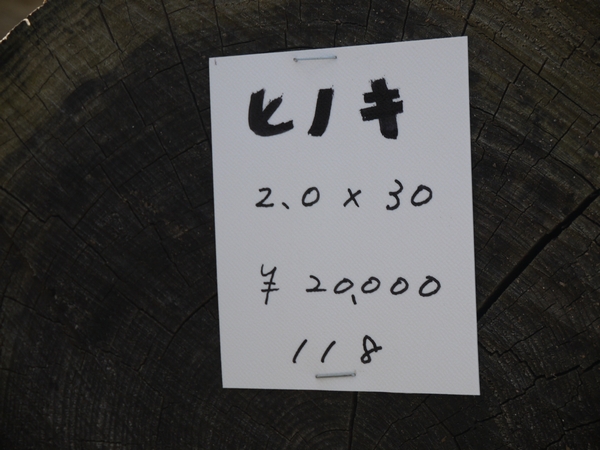 ヒノキ
2.0 × 30
¥ 20,000
118